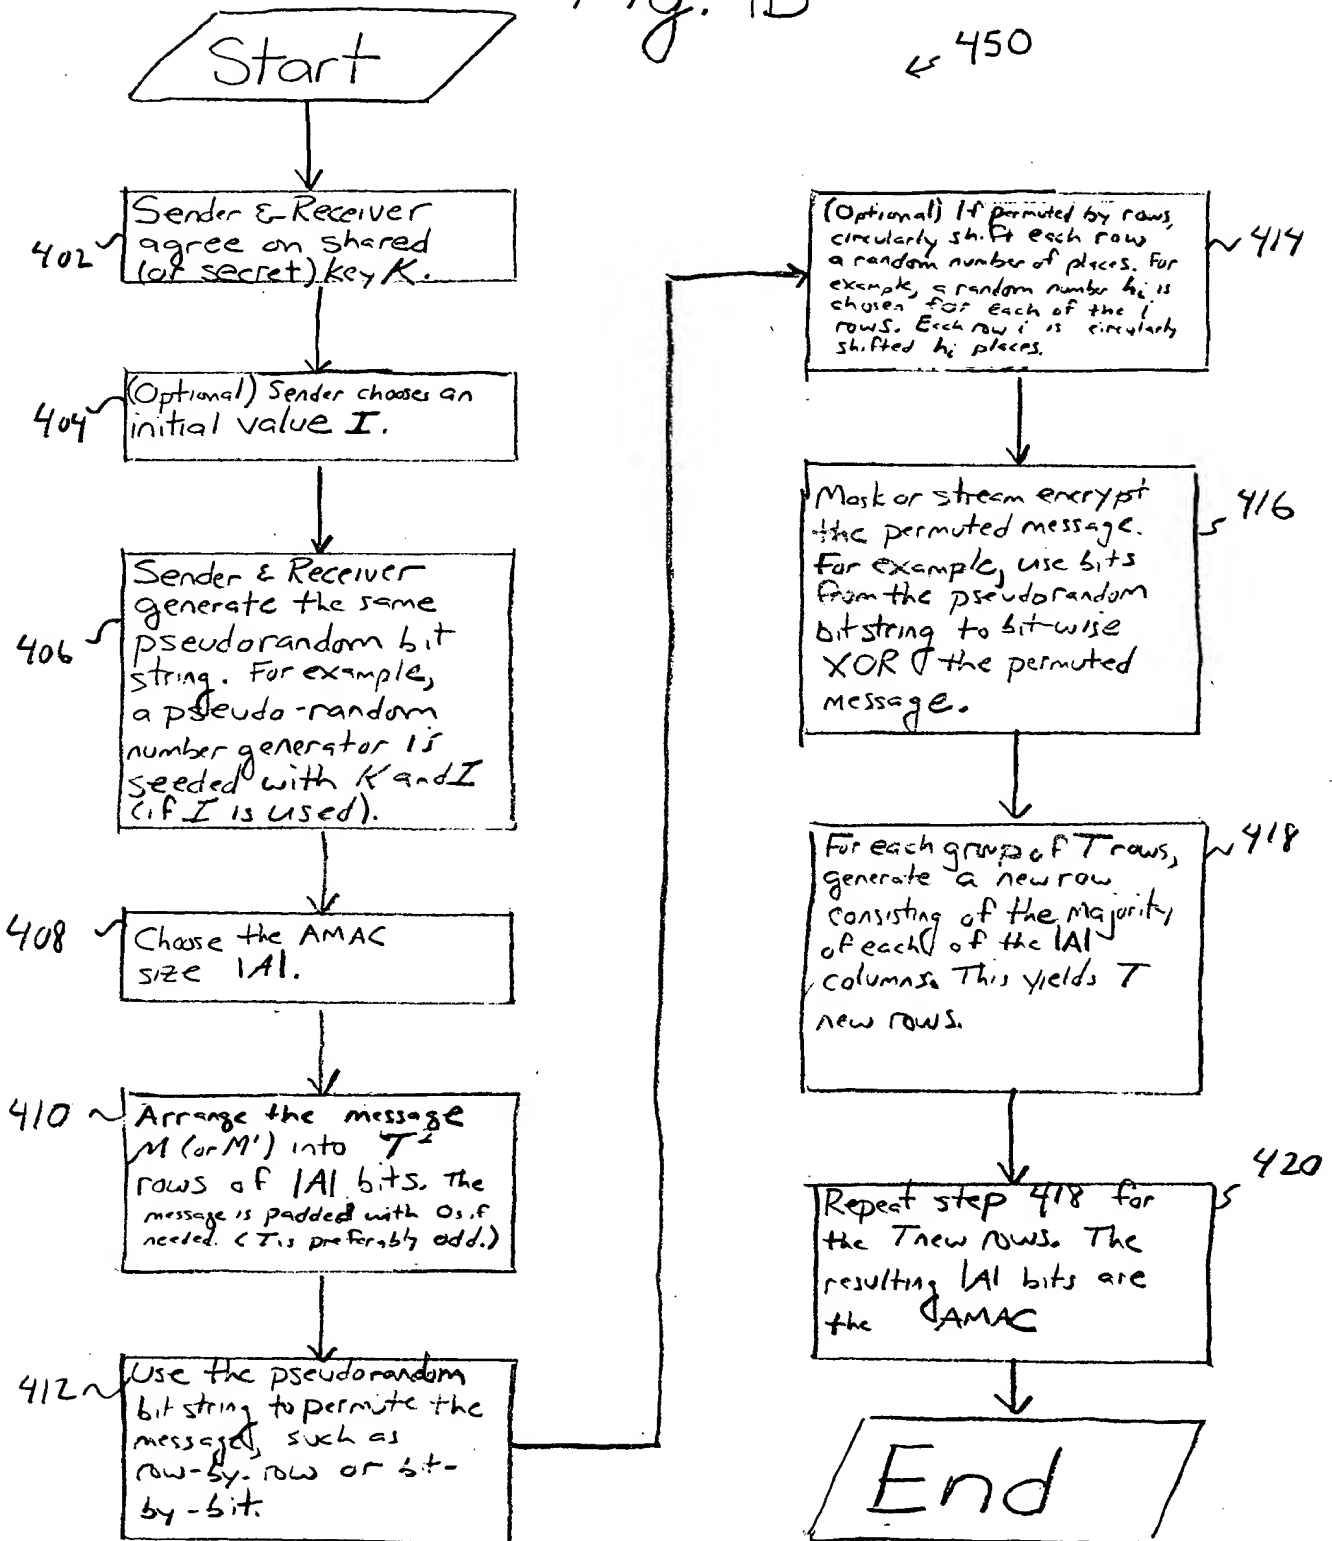 Fig. 1B
450
Start
402
Sender & Receiver
agree on shared
(or secret) key K.
404
(Optional) Sender chooses an
initial value I.
406
Sender & Receiver
generate the same
pseudorandom bit
string. For example,
a pseudo-random
number generator is
seeded with K and I
(if I is used).
408
Choose the AMAC
size |A|.
410
Arrange the message
M (or M') into T²
rows of |A| bits. The
message is padded with 0s if
needed. (T is preferably odd.)
412
Use the pseudorandom
bit string to permute the
message, such as
row-by-row or bit-
by-bit.
414
(Optional) If permuted by rows,
circularly shift each row
a random number of places. For
example, a random number hi is
chosen for each of the i
rows. Each row i is circularly
shifted hi places.
416
Mask or stream encrypt
the permuted message.
For example, use bits
from the pseudorandom
bit string to bit-wise
XOR the permuted
message.
418
For each group of T rows,
generate a new row
consisting of the majority
of each of the |A|
columns. This yields T
new rows.
420
Repeat step 418 for
the T new rows. The
resulting |A| bits are
the AMAC
End